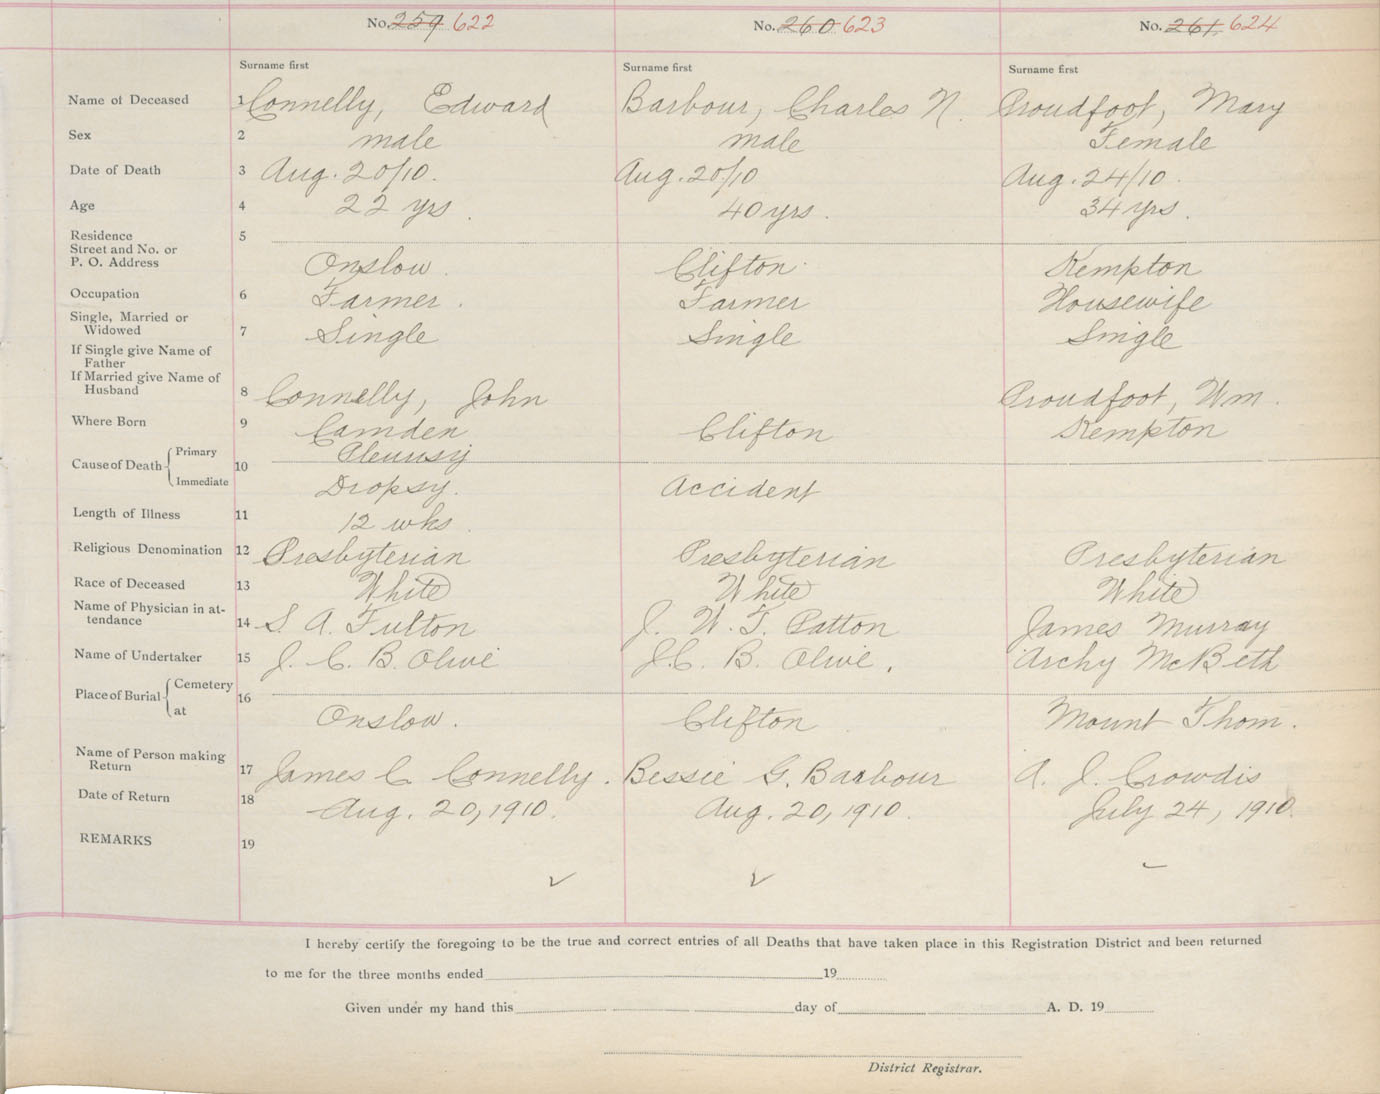 No. 259 622 No. 260 623 No. 261 624
Surname first Surname first Surname first
Name of Deceased 1 Connelly, Edward Barbour, Charles N. Proudfoot, Mary
Sex 2 male male Female
Date of Death 3 Aug. 20/10. Aug. 20/10 Aug. 24/10.
Age 4 22 yrs. 40 yrs. 34 yrs.
Residence 5
Street and No. or
P. O. Address Onslow. Clifton. Kempton
Occupation 6 Farmer. Farmer Housewife
Single, Married or
Widowed 7 Single Single Single
If Single give Name of
Father
If Married give Name of
Husband 8 Connelly, John Proudfoot, Wm.
Where Born 9 Camden Clifton Kempton
Cause of Death Primary 10 Pleurisy
Immediate Dropsy. Accident
Length of Illness 11 12 wks.
Religious Denomination 12 Presbyterian Presbyterian Presbyterian
Race of Deceased 13 White White White
Name of Physician in at-
tendance 14 S. A. Fulton J. W. T. Patton James Murray
Name of Undertaker 15 J. C. B. Olive J. C. B. Olive. Archy McBeth
Place of Burial Cemetery 16
at Onslow. Clifton Mount Thom.
Name of Person making
Return 17 James C Connelly. Bessie G. Barbour A. J. Crowdis
Date of Return 18 Aug. 20, 1910. Aug. 20, 1910. July 24, 1910.
REMARKS 19
I hereby certify the foregoing to be the true and correct entries of all Deaths that have taken place in this Registration District and been returned
to me for the three months ended 19
Given under my hand this day of A. D. 19
District Registrar.